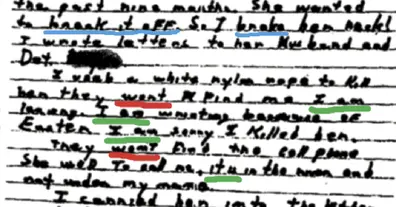 the past nine months. She wanted
to break it off. So I broke her neck!
I wrote letters to her Husband and
Det.
I used a white nylon rope to kill
her they wont find me I am
leaving. I am writing because of
Easter I am sorry I killed her.
They wont find the cell phone
she used to call me. it is in the river and
not under my name.
I carried her into the